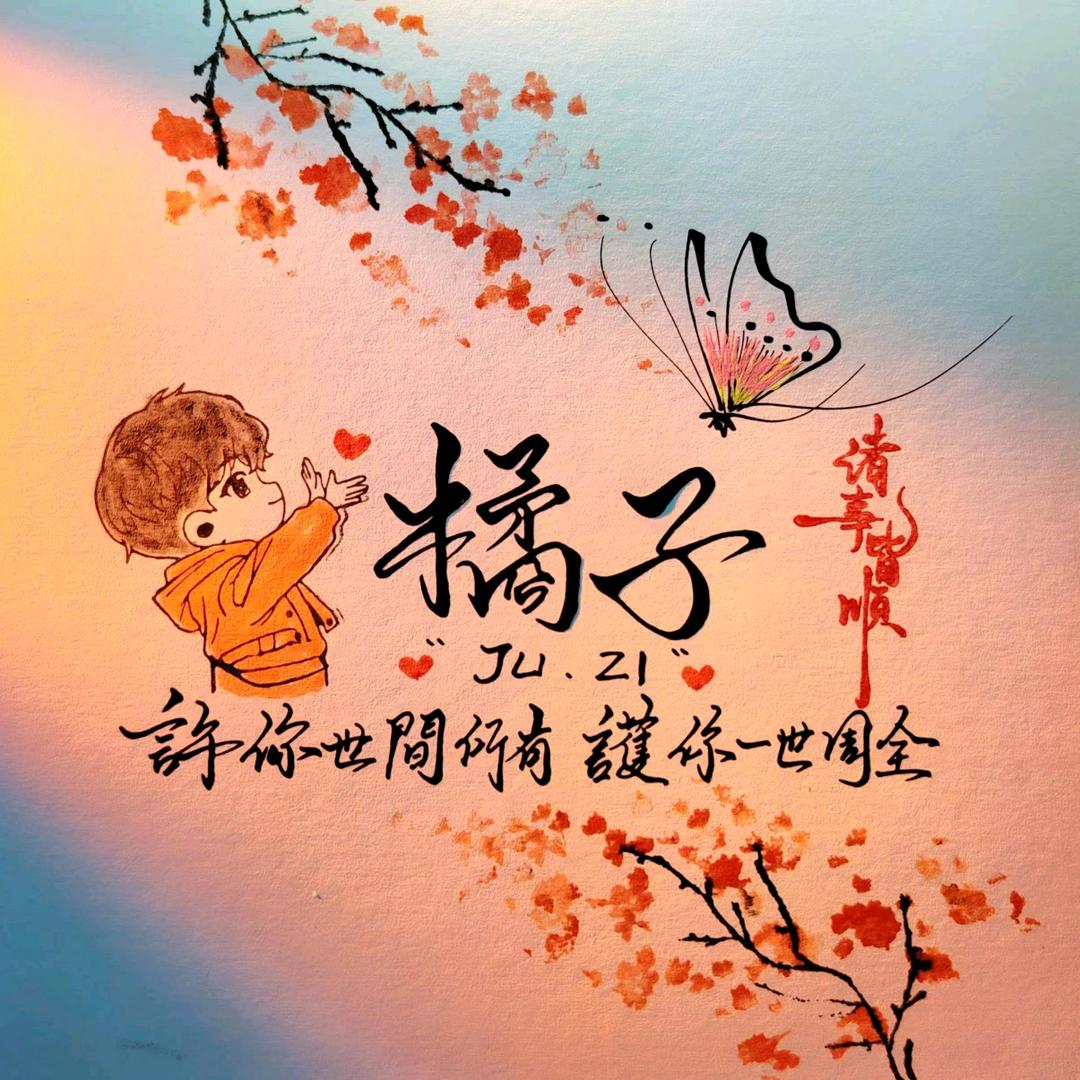 橘子
"JU.ZI"
許你世間所有 護你一世周全
諸事皆順